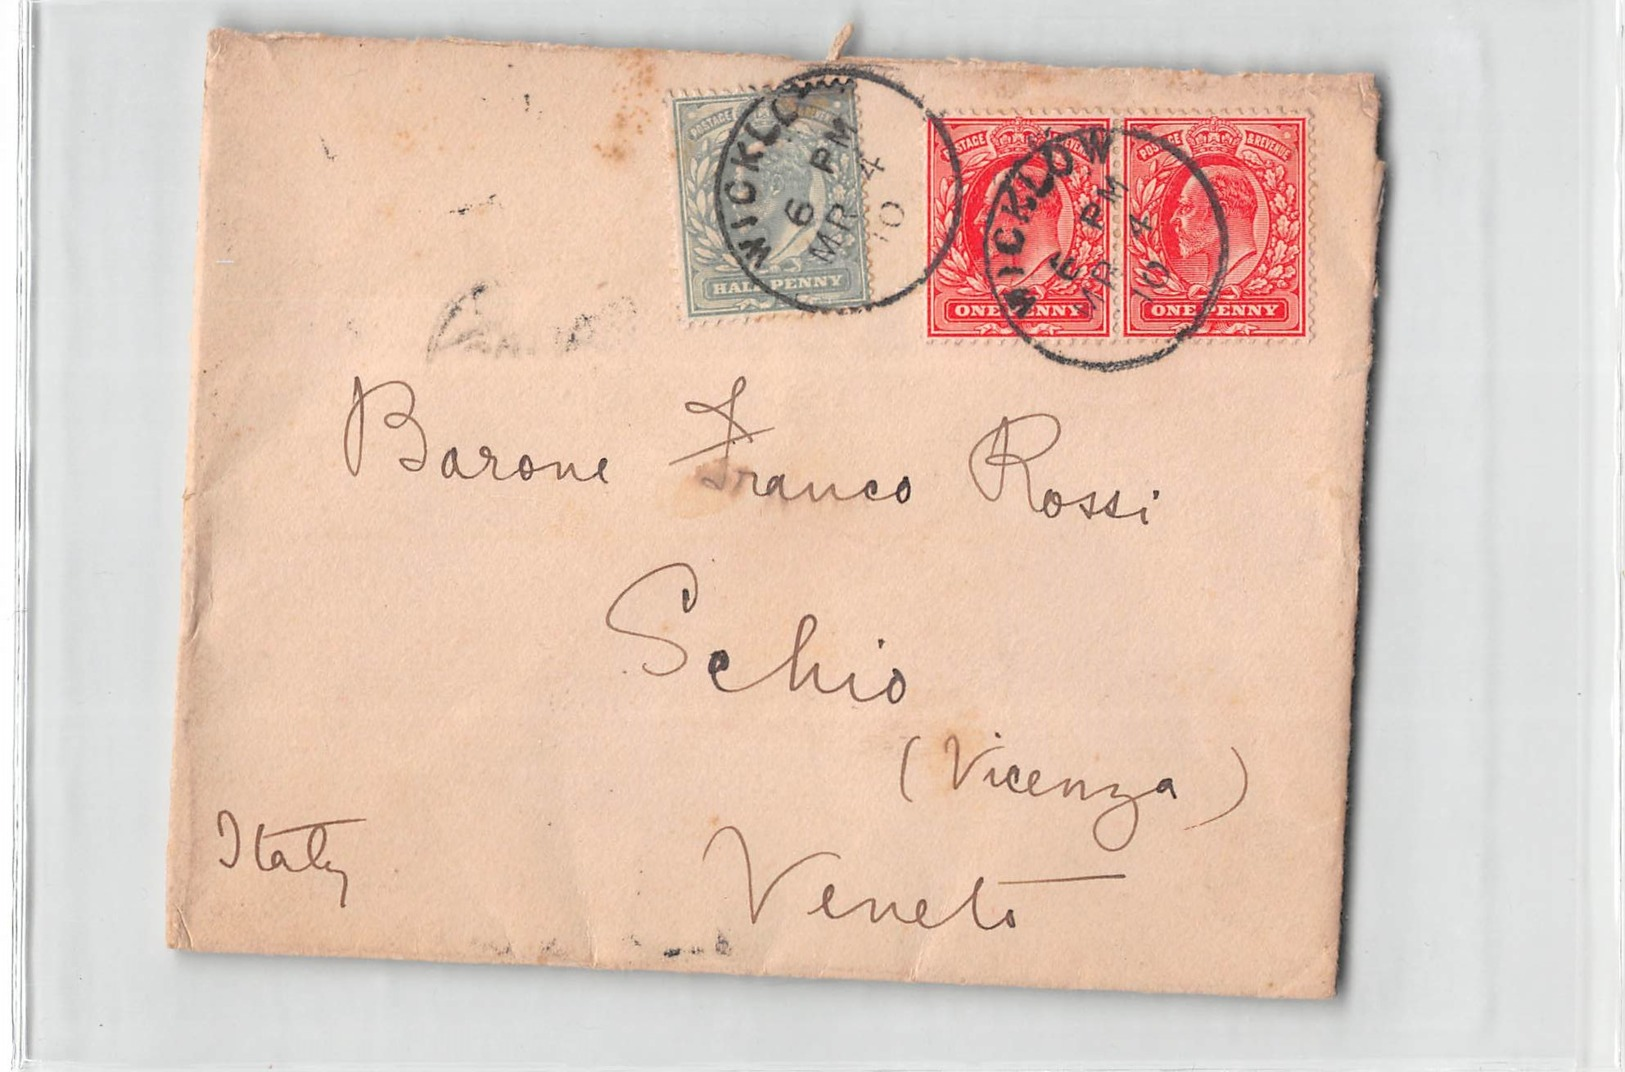 POSTAGE
HALF PENNY
WICKLOW
6 PM
MR 4
10
POSTAGE & REVENUE
ONE PENNY
POSTAGE & REVENUE
ONE PENNY
WICKLOW
6 PM
MR 4
10
Barone Franco Rossi
Schio
(Vicenza)
Italy
Veneto